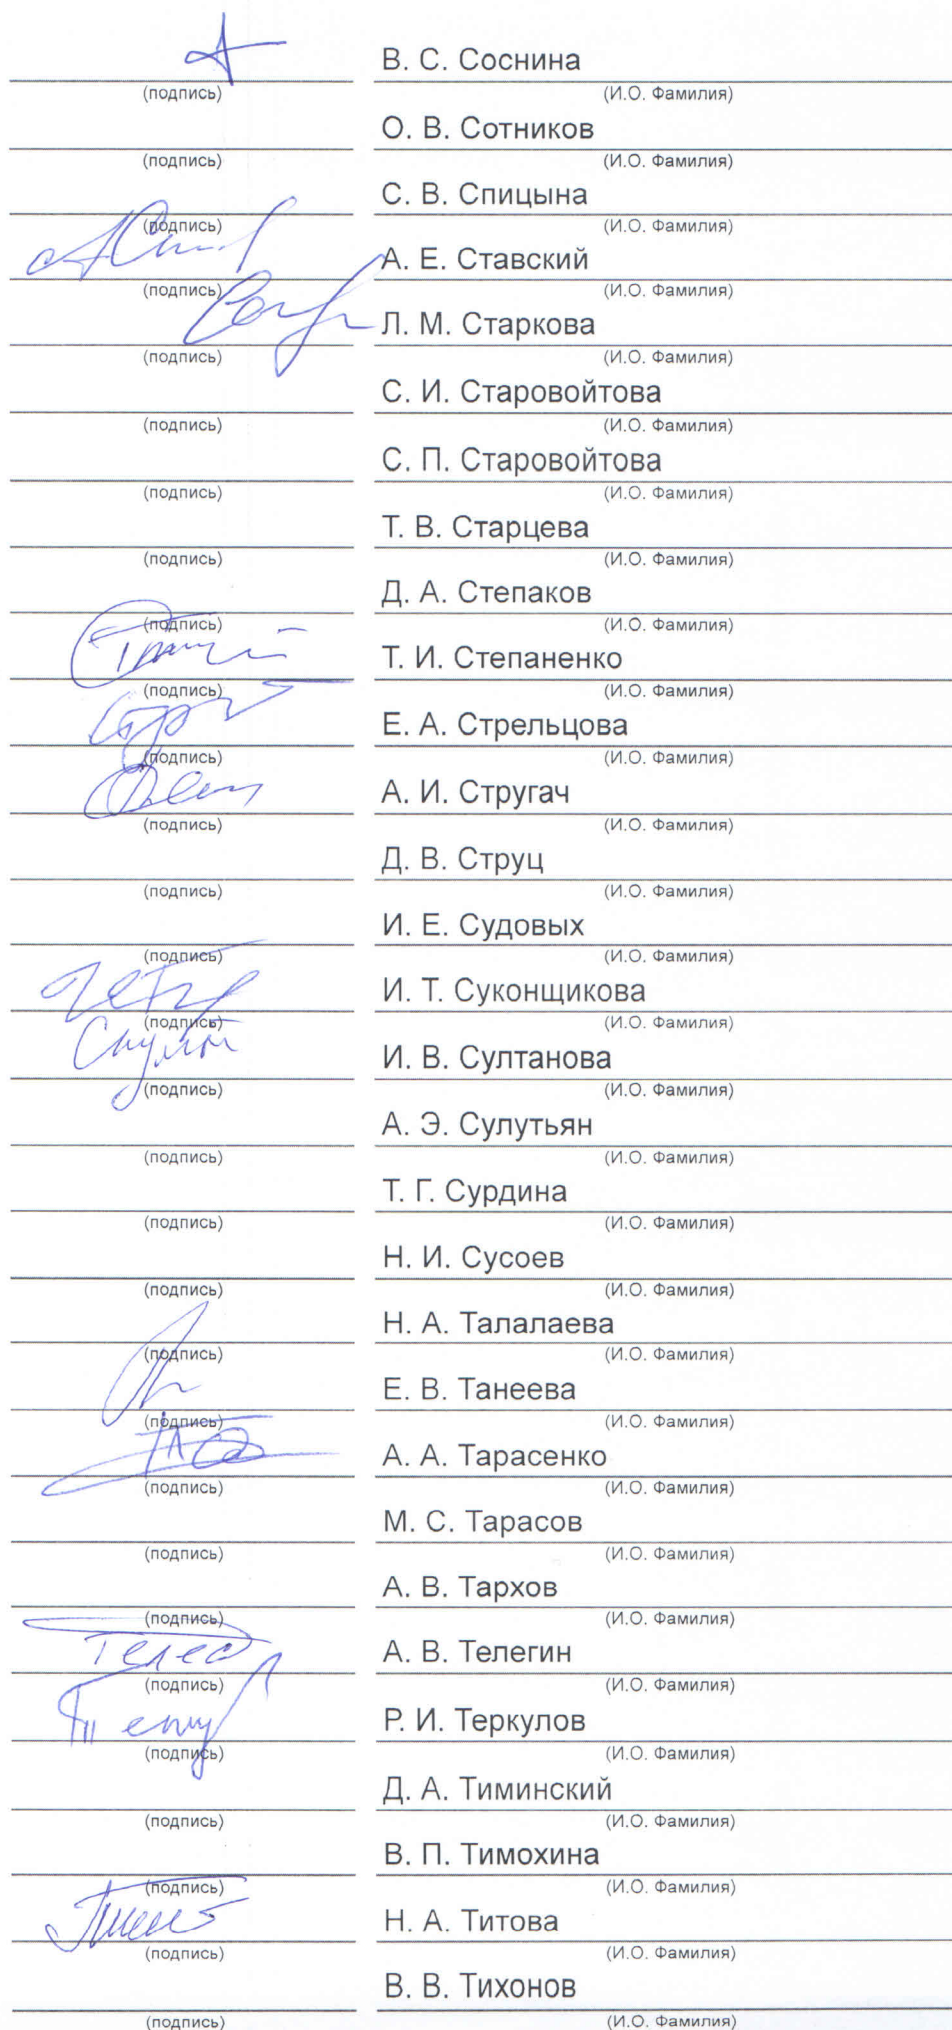 В. С. Соснина
(подпись) (И.О. Фамилия)
О. В. Сотников
(подпись) (И.О. Фамилия)
С. В. Спицына
(подпись) (И.О. Фамилия)
А. Е. Ставский
(подпись) (И.О. Фамилия)
Л. М. Старкова
(подпись) (И.О. Фамилия)
С. И. Старовойтова
(подпись) (И.О. Фамилия)
С. П. Старовойтова
(подпись) (И.О. Фамилия)
Т. В. Старцева
(подпись) (И.О. Фамилия)
Д. А. Степаков
(подпись) (И.О. Фамилия)
Т. И. Степаненко
(подпись) (И.О. Фамилия)
Е. А. Стрельцова
(подпись) (И.О. Фамилия)
А. И. Стругач
(подпись) (И.О. Фамилия)
Д. В. Струц
(подпись) (И.О. Фамилия)
И. Е. Судовых
(подпись) (И.О. Фамилия)
И. Т. Суконщикова
(подпись) (И.О. Фамилия)
И. В. Султанова
(подпись) (И.О. Фамилия)
А. Э. Сулутьян
(подпись) (И.О. Фамилия)
Т. Г. Сурдина
(подпись) (И.О. Фамилия)
Н. И. Сусоев
(подпись) (И.О. Фамилия)
Н. А. Талалаева
(подпись) (И.О. Фамилия)
Е. В. Танеева
(подпись) (И.О. Фамилия)
А. А. Тарасенко
(подпись) (И.О. Фамилия)
М. С. Тарасов
(подпись) (И.О. Фамилия)
А. В. Тархов
(подпись) (И.О. Фамилия)
А. В. Телегин
(подпись) (И.О. Фамилия)
Р. И. Теркулов
(подпись) (И.О. Фамилия)
Д. А. Тиминский
(подпись) (И.О. Фамилия)
В. П. Тимохина
(подпись) (И.О. Фамилия)
Н. А. Титова
(подпись) (И.О. Фамилия)
В. В. Тихонов
(подпись) (И.О. Фамилия)